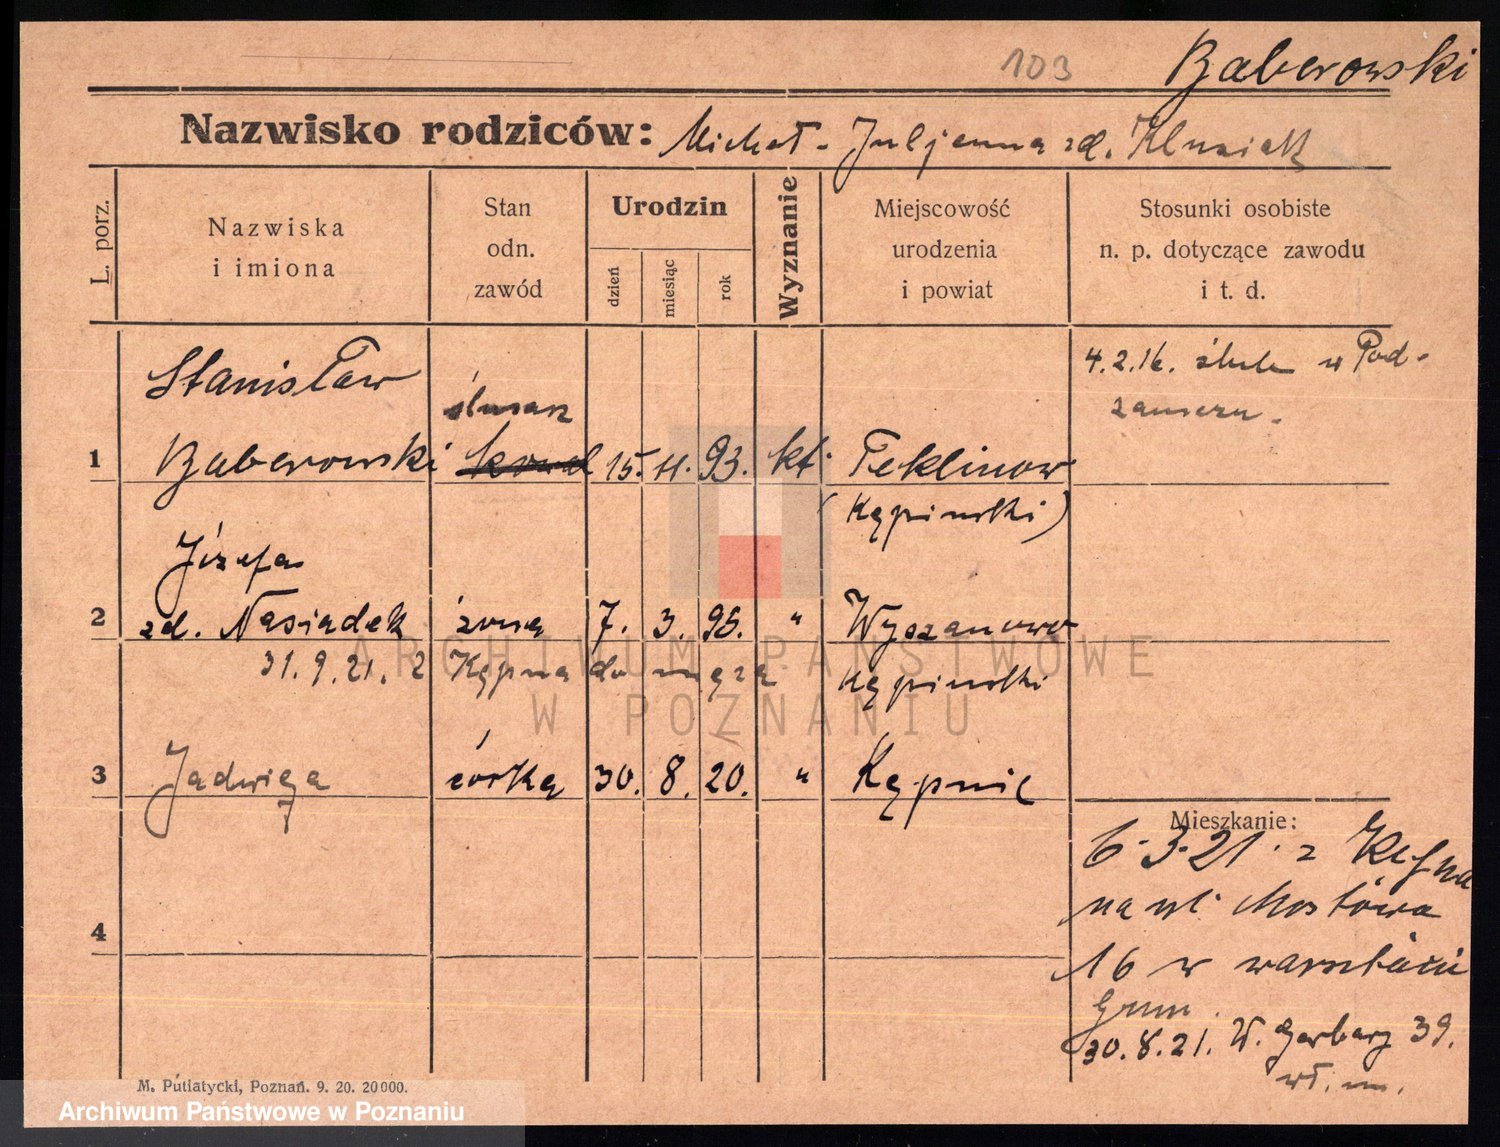 103
Baberowski
Nazwisko rodziców: Michał - Juljanna zd. Kluziak
L. porz.
Nazwiska
i imiona
Stan
odn.
zawód
Urodzin
dzień
miesiąc
rok
Wyznanie
Miejscowość
urodzenia
i powiat
Stosunki osobiste
n. p. dotyczące zawodu
i t. d.
4.2.16. ślub w Pod-
zamczu.
Stanisław
ślusarz
1 Baberowski kowal 15. 11. 93. kt. Teklinow
(Kępiński)
Józefa
2 zd. Nasiadek żona 7. 3. 95. " Wyszanowo
31.9.21. z Kępna do męża Kępiński
3 Jadwiga córka 30. 8. 20. " Kępnie
Mieszkanie:
6.3.21. z Kępna
na ul. Mostowa
16 w warsztacie
4
30.8.21. W. Garbary 39.
wł. m.
M. Putiatycki, Poznań. 9. 20. 20000.
ARCHIWUM PAŃSTWOWE
W POZNANIU
Archiwum Państwowe w Poznaniu